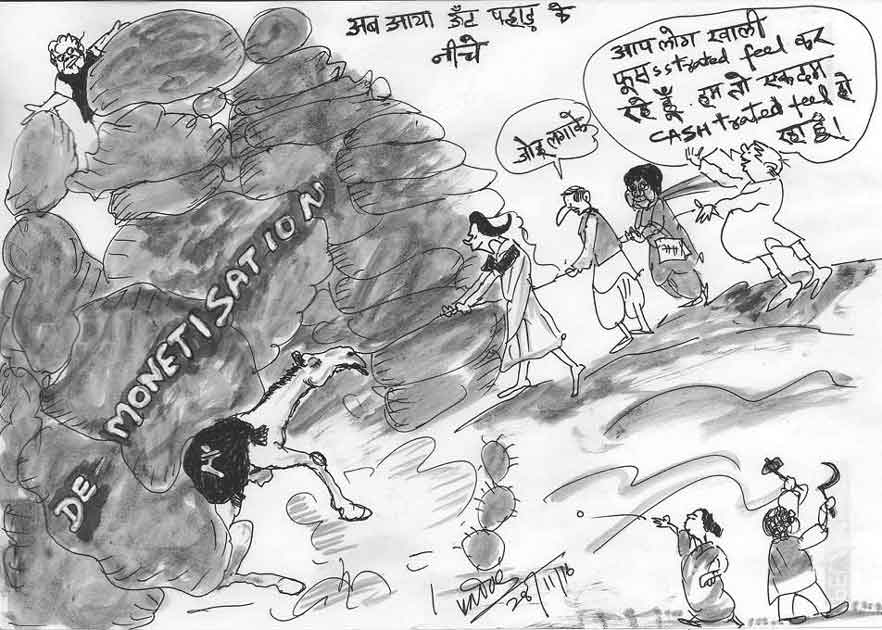 अब आया ऊँट पहाड़ के
नीचे
आप लोग खाली
फूसsstrated feel कर
रहे हूँ. हम तो एकदम
CASHtrated feel हो
रहा हूँ।
जोड़ लगाके
DE MONETISATION
28/11/16